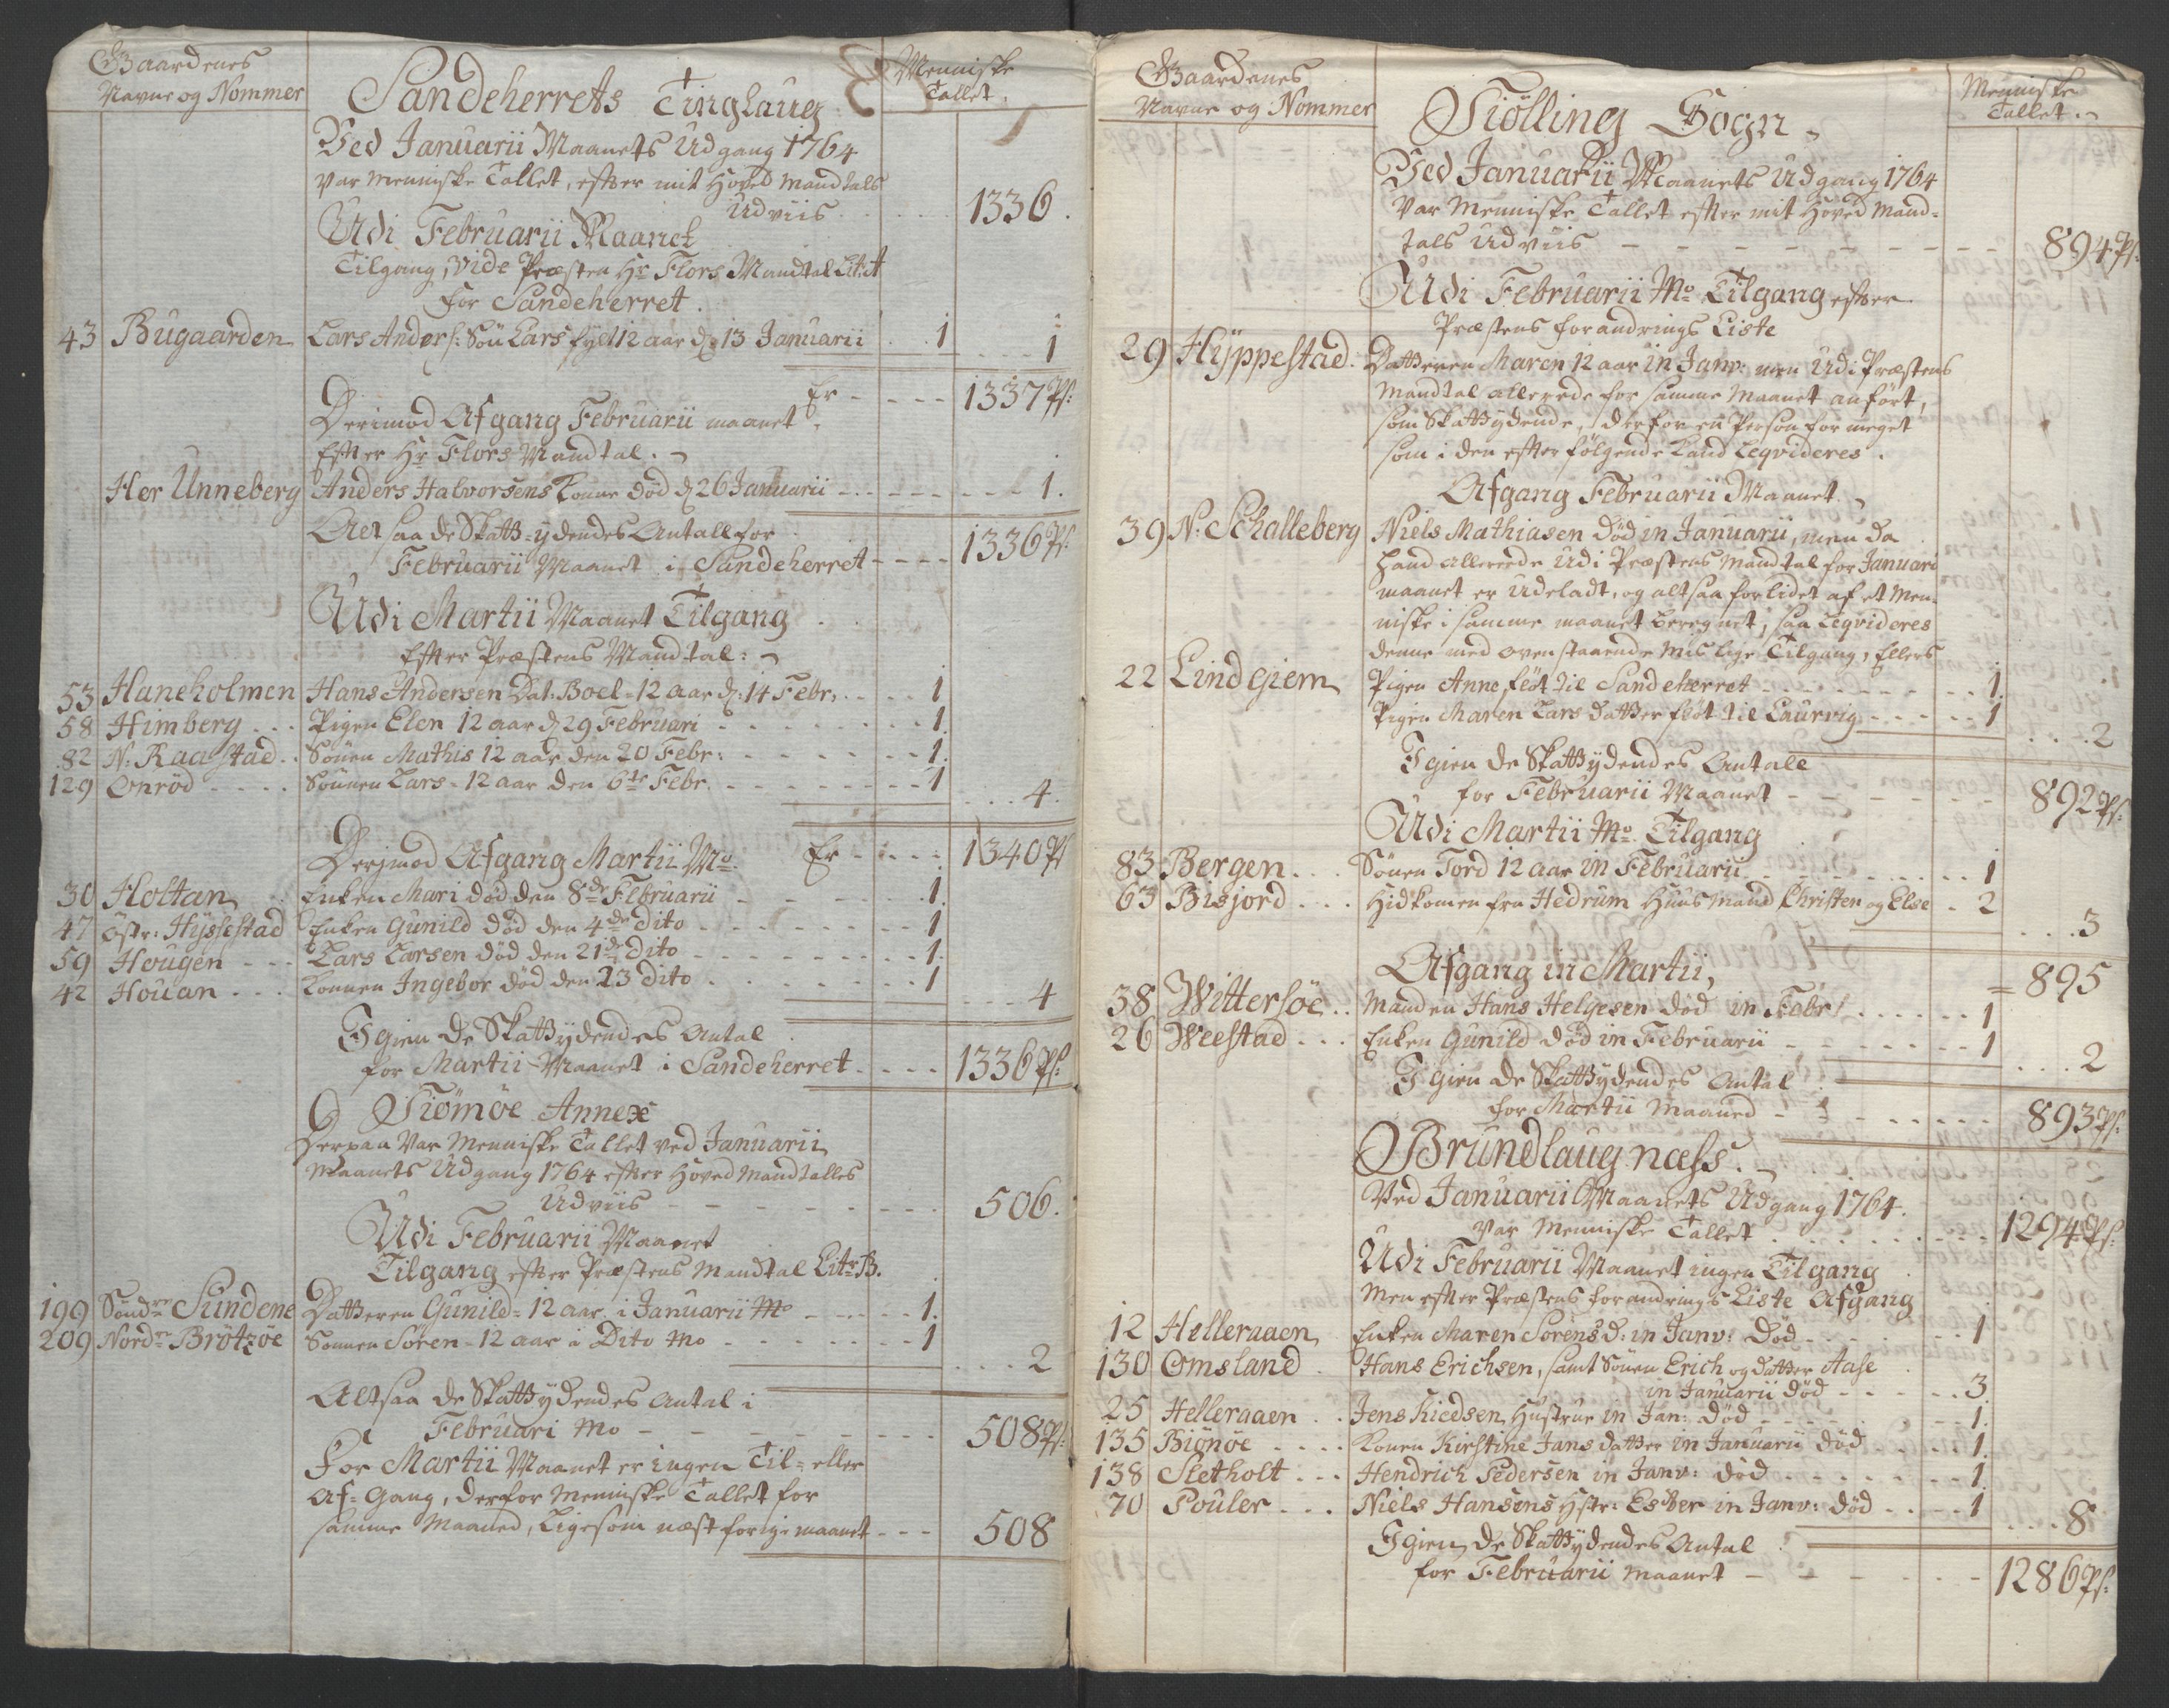 Gaardenes
Navne og Nommer
Menniske
Tallet.
Sandeherrets Tinglaug
Ved Januarii Maanets Udgang 1764
var Menniske Tallet, efter mit Hoved Mandtals
Udviis 1336.
Udi Februarii Maanet
Tilgang, vide Præsten Hr Flors Mandtal Lit: A
for Sandeherret.
43 Bugaarden Lars Anders: Søn Lars fyldt 12 aar d: 13 Januarii 1
1
Er 1337 Ps:
Derimod Afgang Februarii maanet
Efter Hr Flors Mandtal.
Her Unneberg Anders Halvorsens Konne død d 26 Januarii 1.
Alt saa de Skatt-ydendes Antall for
Februarii Maanet i Sandeherret 1336 Ps:
Udi Martii Maanet Tilgang
Efter Præstens Mandtal:
53 Haneholmen Hans Andersen Dat: Boel 12 aar d: 14 Febr. 1
58 Himberg Pigen Elen 12 aar d 29 Februari 1.
82 N: Raastad Sønen Mathis 12 aar den 20 Febr: 1.
129 Onrød Sønnen Lars 12 aar den 6te Febr. 1
4.
Er 1340 Ps
Derimod Afgang Martii Mo.
30 Holtan Enken Mari død den 8de Februarii 1.
47 Østr: Hyssestad Enken Gunild død den 4de dito 1
59 Hougen Lars Larsen død den 21de Dito 1.
42 Houan Konnen Ingebor død den 23 dito 1
4
Igien de Skattydendes Antal
for Martii Maanet i Sandeherret 1336 Ps:
Tiømøe Annex
Derpaa var Menniske Tallet ved Januarii
Maanets Udgang 1764 efter Hoved Mandtalles
Udviis 506.
Udi Februarii Maanet
Tilgang efter Præstens Mandtal Litr B.
199 Søndre Sundene Datteren Gunild 12 aar i Januarii Mo 1.
209 Nordr Brøtzøe Sønnen Søren 12 aar i Dito Mo 1
2
Altsaa de Skattydendes Antal i
Februari Mo 508 Ps:
For Martii Maanet er ingen Til- eller
Af- Gang, derfor Menniske Tallet for
samme Maaned, ligesom næst forige maanet 508
Gaardenes
Navne og Nommer
Menniske
Tallet.
Tiølling Sogn
Ved Januarii Maanets Udgang 1764
var Menniske Tallet efter mit Hoved Mand-
tals Udviis 894 Ps:
Udi Februarii Mo Tilgang efter
Præstens forandrings Liste
29 Hÿppestad. Datteren Maren 12 aar in Janv: men Udi Præstens
Mandtal allerede for samme Maanet anført,
som Skattydende, derfor en Person for meget
som i den efter følgende Land Leqvideres.
Afgang Februarii Maanet.
39 N: Schalleberg Niels Mathiasen død in Januarii, men da
hand allerede udi Præstens Mandtal for Januari
maanet er udeladt, og altsaa for lidet af et Men-
niske i samme maanet beregnet, saa Leqvideres
denne med ovenstaaende mislige Tilgang, Ellers
22 Lindgiem Pigen Anne fløt til Sandeherret 1.
Pigen Maren Lars datter fløt til Laurvig 1
2
Igien de Skattydendes Antall
for Februarii Maanet 892 Ps:
Udi Martii Mo Tilgang
83 Bergen Sønen Tord 12 aar in Februarii 1
63 Bisjord Hidkomen fra Hedrum Huusmand Christen og Else 2
3
895
Afgang in Martii,
38 Wittersøe Manden Hans Helgesen død in Febr 1
26 Weestad Enken Gunild død in Februarii 1
2
Igien de Skattydendes Antal
for Martii Maaned 893 Ps:
Brundlaugnæss.
Ved Januarii Maanets Udgang 1764.
var Menniske Tallet 1294 Ps:
Udi Februarii Maanet ingen Tilgang
Men efter Præstens forandrings Liste Afgang
12 Helleraaen Enken Maren Sørens D: in Janv: død 1
130 Omsland Hans Erichsen, samt Sønen Erich og datter Aase
in Januarii død 3
25 Helleraaen Jens Kiedsen Hustrue in Jan: død 1.
135 Biønøe Konen Kirstine Jans datter in Januarii død 1.
138 Sletholt Hendrich Pedersen in Janv: død 1.
70 Pouler Niels Hansens Hstr: Esber in Janv: død 1
8
Igien de Skattydendes Antal
for Februarii Maanet 1286 Ps: